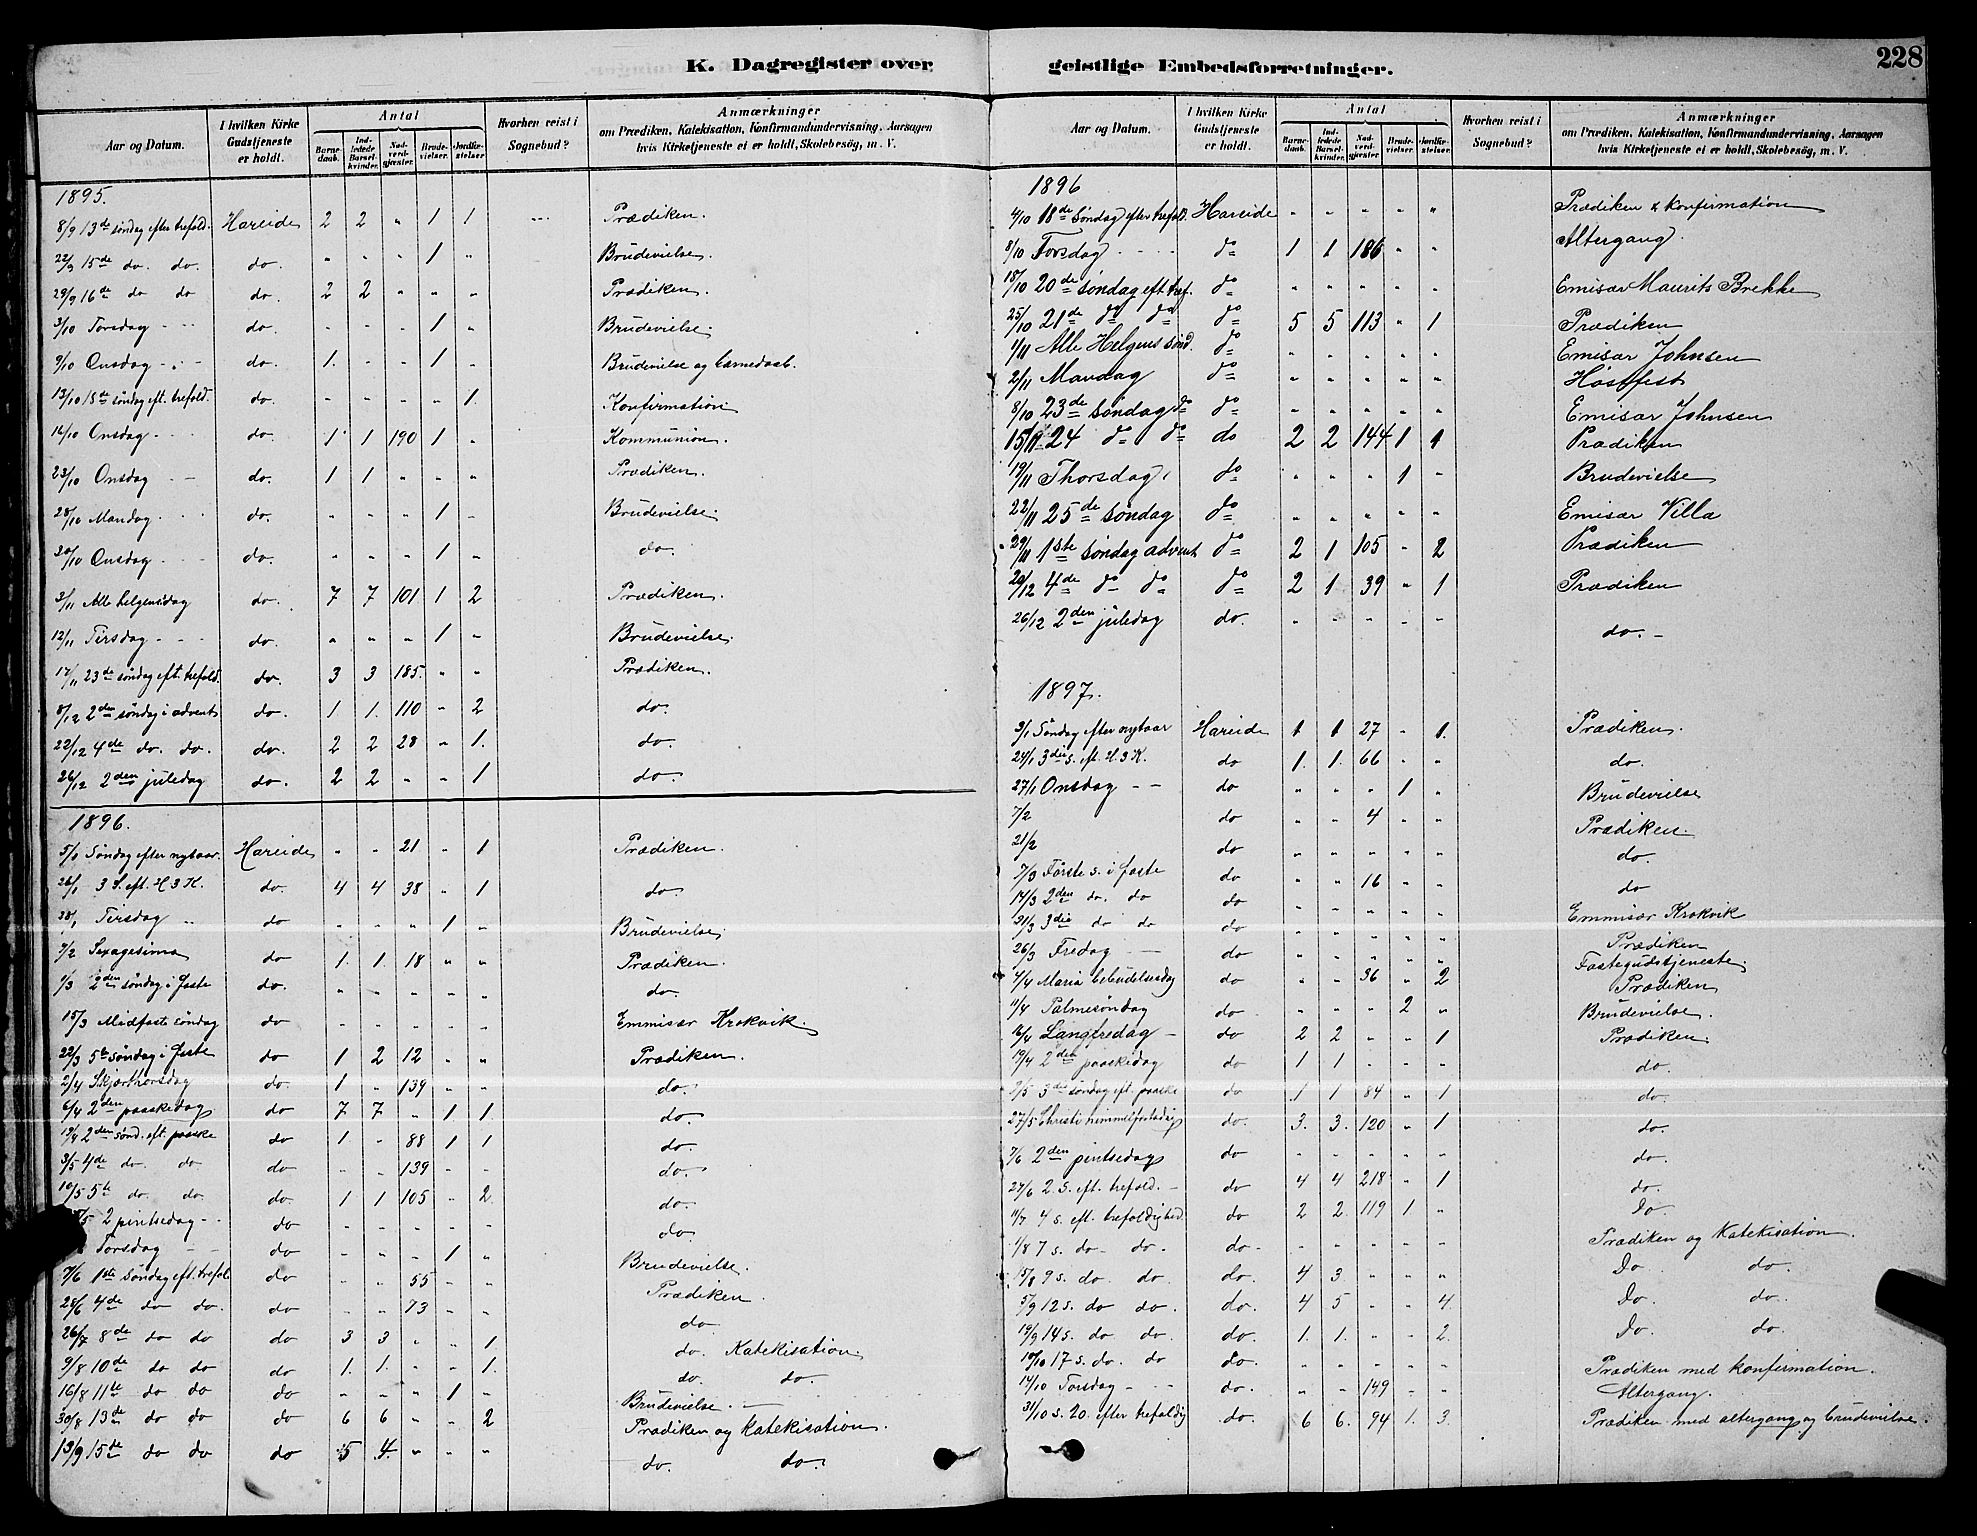 K. Dagregister over geistlige Embedsforretninger.
228
Aar og Datum. I hvilken Kirke Gudstjeneste er holdt. Antal Barnedaab. Indledede Barselkvinder. Nadverdgjester. Brudevielser. Jordfæstelser. Hvorhen reist i Sognebud? Anmærkninger om Prædiken, Katekisation, Konfirmandundervisning, Aarsagen hvis Kirketjeneste ei er holdt, Skolebesög, m. V.
1895.
8/9 13de søndag efter trefold. Hareide 2 2 " 1 1 Prædiken.
22/9 15de do. do. do. " " " 1 " Brudevielse.
29/9 16de do do do. 2 2 " " " Prædiken.
3/10 Torsdag - - - do. - - - 1 " Brudevielse.
9/10 Onsdag - - - do. 1. - - 1 - Brudevielse og barnedaab.
13/10 18de søndag eft. trefold. do. - - - " 1. Konfirmation
16/10 Onsdag - - - do. 1 1 190 1 " Kommunion.
23/10 Onsdag - - do. 1 1 " " " Prædiken.
28/10 Mandag - - - do. " " " 1 - Brudevielse.
30/10 Onsdag - - - do. " " " 1 " do.
3/11 Alle helgensdag do. 7 7 101 1 2 Prædiken.
12/11 Tirsdag - - - do. " " " 1 " Brudevielse.
17/11 23de søndag eft. trefold. do. 3 3 185. " " Prædiken.
8/12 2den søndag i advents do. 1. 1. 110 " 2 do.
22/12 4de do. do. do. 2 2 28 " 1. do.
26/12 2den juledag do. 2 2 " " 1 do.
1896.
5/1 Søndag efter nytaar. Hareide " " 21 " 1 Prædiken.
26/1 3 S. eft. H 3 K. do. 4 4 38 " 1 do
28/1 Tirsdag " do " " " 1 " Brudevielse.
9/2 Sexagesima do 1. 1. 18 " " Prædiken.
1/3 2den søndag i faste do. " " " " " do.
15/3 Midfaste söndag do - - - - - Emmisær Krokvik.
22/3 5te søndag i faste do 1 2 12 " " Prædiken.
2/4 Skjærthorsdag do. 1 " 139 " " do.
6/4 2den paaskedag do 7 7 " 1 1. do.
19/4 2den sønd. eft. paaske do 1. " 88 1 1 do.
3/5 4de do. do. do - - 139 - - do.
10/5 5te do. do. do. 1 1 105 " 2. do.
/5 2 pintsedag - - do - - - - - do.
Torsdag - - do " " " 1 " Brudevielse.
7/6 1ste søndag eft. trefol. do " " 55 - - Prædiken.
28/6 4de do do. do " " 73 " " do
26/7 8de do do do 3 3 " " 1 do. Katekisation.
9/8 10de do do do 1. 1. - - 1. do. do.
16/8 11te do do do " " " 1 " Brudevielse. -
30/8 13de do do do 6 6 " " 2 Prædiken og Katekisation.
13/9 15te do do do 5 4. " " " do. do.
Aar og Datum. I hvilken Kirke Gudstjeneste er holdt. Antal Barnedaab. Indledede Barselkvinder. Nadverdgjester. Brudevielser. Jordfæstelser. Hvorhen reist i Sognebud? Anmærkninger om Prædiken, Katekisation, Konfirmandundervisning, Aarsagen hvis Kirketjeneste ei er holdt, Skolebesög, m. V.
1896
4/10 18de Søndag efter trefol. Hareide " " " " " Prædiken & Konfirmation
8/10 Torsdag - - - - do 1 1 186 " " Altergang.
18/10 20de søndag eft tref. do " " " " " Emisær Maurits Brekke
25/10 21de do do do 5 5 113 " 1 Prædiken
1/11 Alle Helgens sönd. do " " " " " Emisær Johnsen
2/11 Mandag do " " " " " Høstfest
8/10 23de søndag do do " " " " " Emisær Johnsen
15/11 24 do do do 2 2 144 1 1 Prædiken
19/11 Thorsdag do " " " 1 " Brudevielse
22/11 25de søndag do " " " " " Emisær Villa
29/11 1ste søndag advent do 2 1 105 " 2 Prædiken
20/12 4de do do do 2 1 39 " 1 Prædiken
26/12 2den juledag do. " " " " " do. -
1897.
3/1 Søndag efter nytaar Hareide 1 1 27 " 1. Prædiken.
24/1 3die s. eft. H. 3 K. do 1. 1. 66 " " do.
27/1 Onsdag - - do " " " 1 " Brudevielse
7/2 do " " 4 " " Prædiken.
21/2 do " " " " " do.
7/3 Første s. i faste do " " 16 " " do
14/3 2den do. do do " " " " " Emmisær Krokvik
21/3 3die do do do " " " " " Prædiken
26/3 Fredag - do " " " " " Fastegudstjeneste.
4/4 Maria bebudelsesdag do " " 36 " 2 Prædiken
11/4 Palmesøndag do - " " " 2 " Brudevielse.
16/4 Langfredag - do 2 2 " " 1 Prædiken.
19/4 2den paaskedag do 1 1 " " " do.
2/5 3die søndag eft. paaske do 1 1 84 " 1 do.
27/5 Christi himmelfartsdag do. 3. 3. 120 " 1 do.
7/6 2den pintsedag do " " " " " do.
27/6 2. S. eft. trefold. - do 4 4 218 " 1 do.
11/7 4 s. eft. trefoldighed. do 2 2. 119 1 " Do.
1/8 7 s. do - do. do. " " " " " Prædiken og Katekisation.
15/8 9 s. do. do. do. 4 3 " " " Do do.
5/9 12 s. do do. do. 4 5 " " 4. Do. do.
19/9 14 s. do do. do. 1. 1. " " 2. Do. do.
10/10 17 s. do. do do. " " " " " Prædiken med konfirmation.
14/10 Torsdag - - - do. " " 149 " " Altergang.
31/10 s. 20. efter trefoldig do. 6 6. 94 1. 3. Prædiken med altergang og brudevielse.